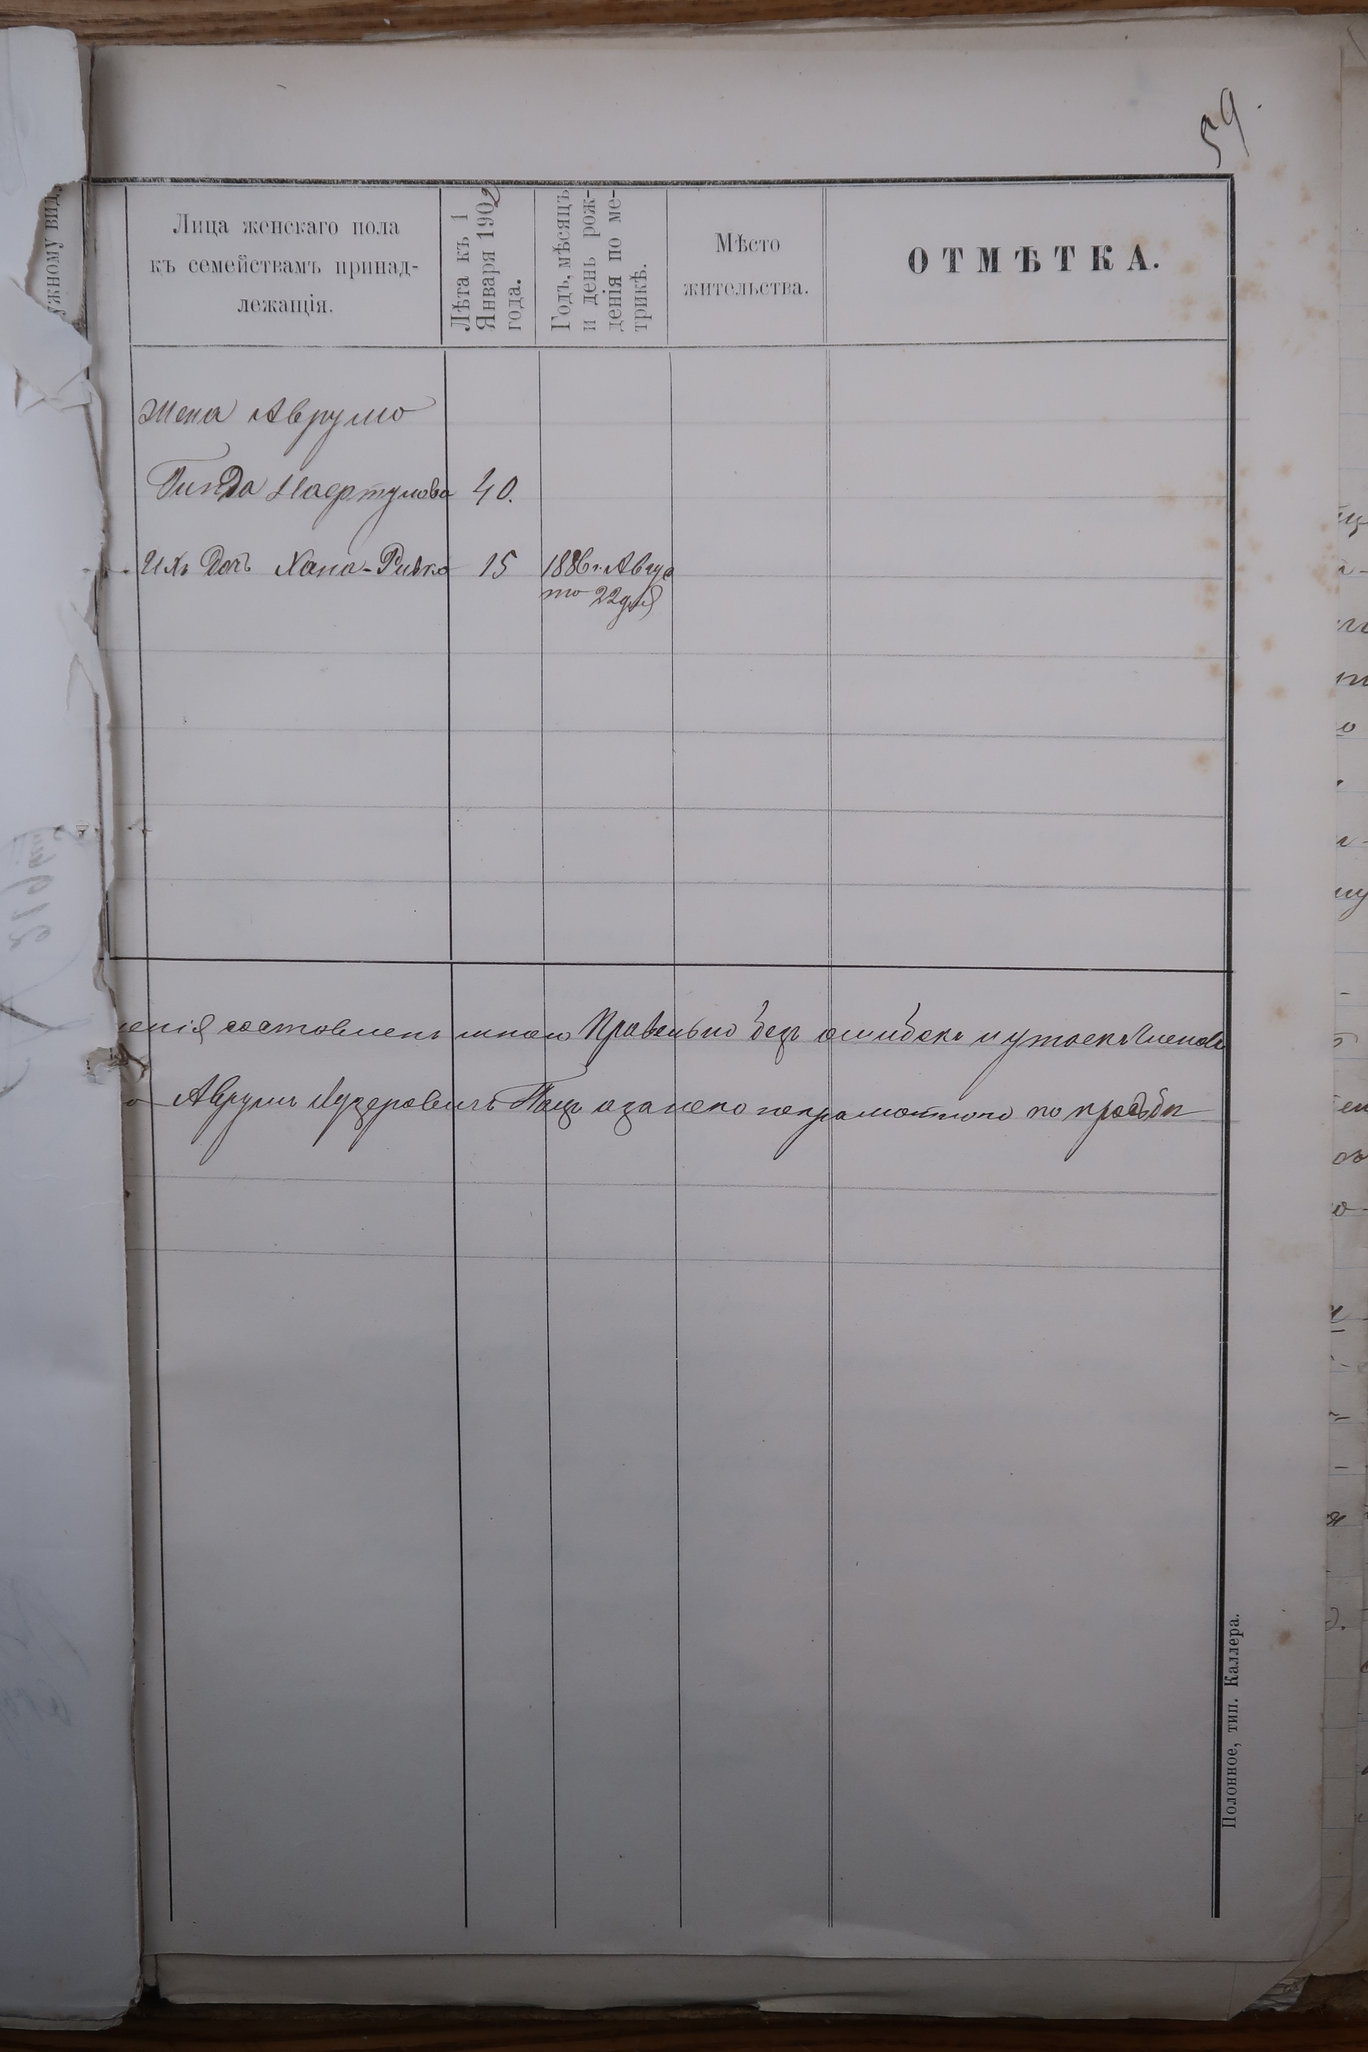 59.
ужному вид
Лица женскаго пола
къ семействамъ принад-
лежащія.
Лѣта къ 1
Января 1902
года.
Годъ, мѣсяцъ
и день рож-
денія по ме-
трикѣ.
Мѣсто
жительства.
ОТМѢТКА.
Жена Аврума
40.
Ихъ Дочь Хана-Ривка 15 1886 г. Авгус
та 22 дня
енія составленъ мною Правельно безъ ошибокъ и утоекъ
Аврумъ Лузеровичъ а за него неграмотного по прозьби
Полонное, тип. Каллера.